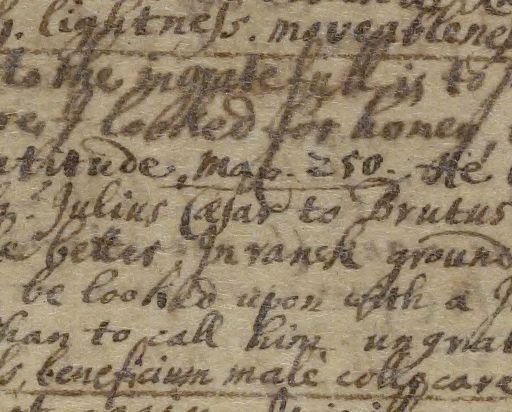 lightness. moveablene
to the ingratefull is to
I looked for honey,
atitude, mag. 250. He
Julius Cæsar to Brutus
better. In ranck ground
be looked upon with a
than to call him ungrat
beneficium male collocare